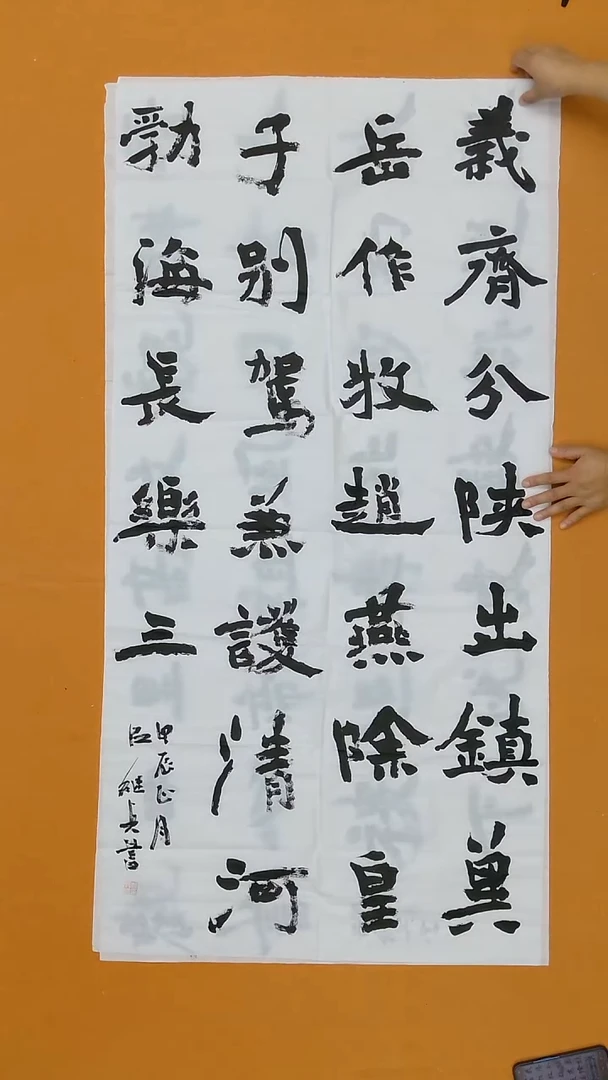 義齊分陝出鎮冀
岳作牧趙燕除皇
子別駕兼護清河
勃海長樂三
甲辰正月
继貞書